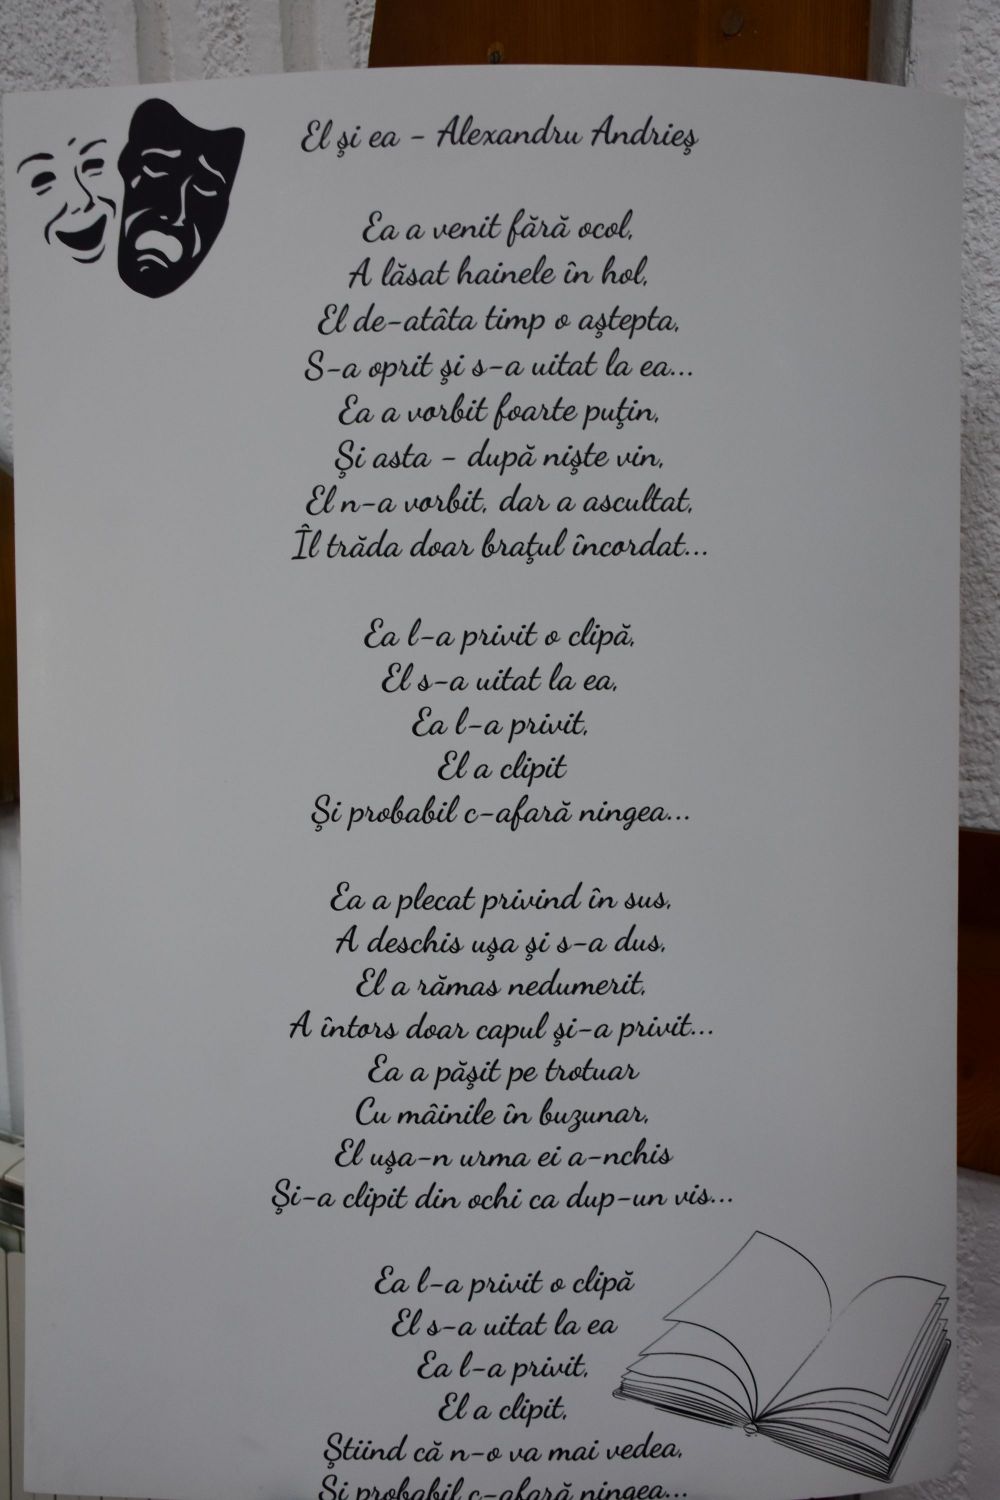 El şi ea - Alexandru Andrieş
Ea a venit fără ocol,
A lăsat hainele în hol,
El de-atâta timp o aştepta,
S-a oprit şi s-a uitat la ea...
Ea a vorbit foarte puţin,
Şi asta - după nişte vin,
El n-a vorbit, dar a ascultat,
Îl trăda doar braţul încordat...
Ea l-a privit o clipă,
El s-a uitat la ea,
Ea l-a privit,
El a clipit
Şi probabil c-afară ningea...
Ea a plecat privind în sus,
A deschis uşa şi s-a dus,
El a rămas nedumerit,
A întors doar capul şi-a privit...
Ea a păşit pe trotuar
Cu mâinile în buzunar,
El uşa-n urma ei a-nchis
Şi-a clipit din ochi ca dup-un vis...
Ea l-a privit o clipă
El s-a uitat la ea
Ea l-a privit,
El a clipit,
Ştiind că n-o va mai vedea,
Şi probabil c-afară ningea...